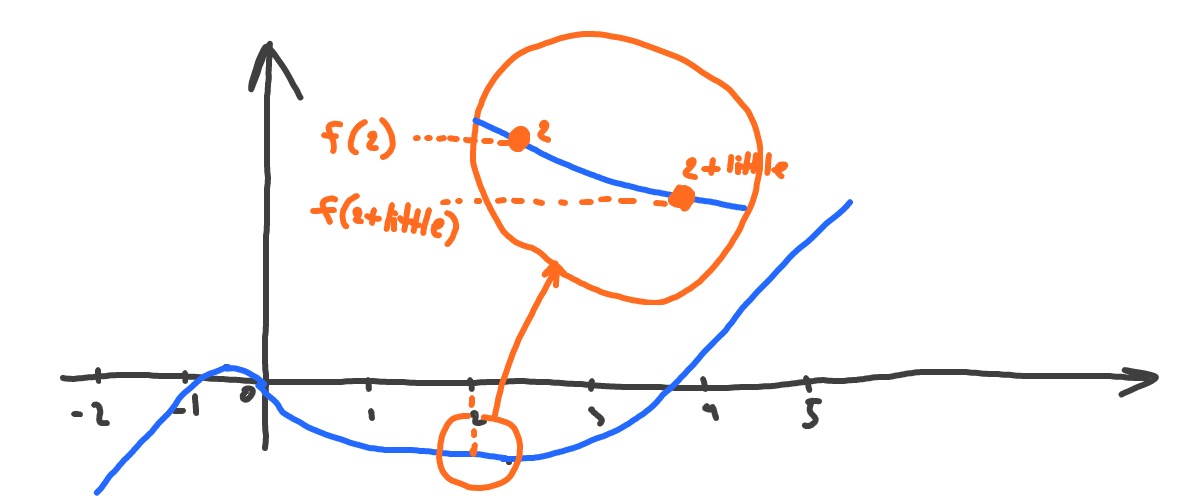 f(2)
2
2+little
f(2+little)
-2
-1
0
1
2
3
4
5